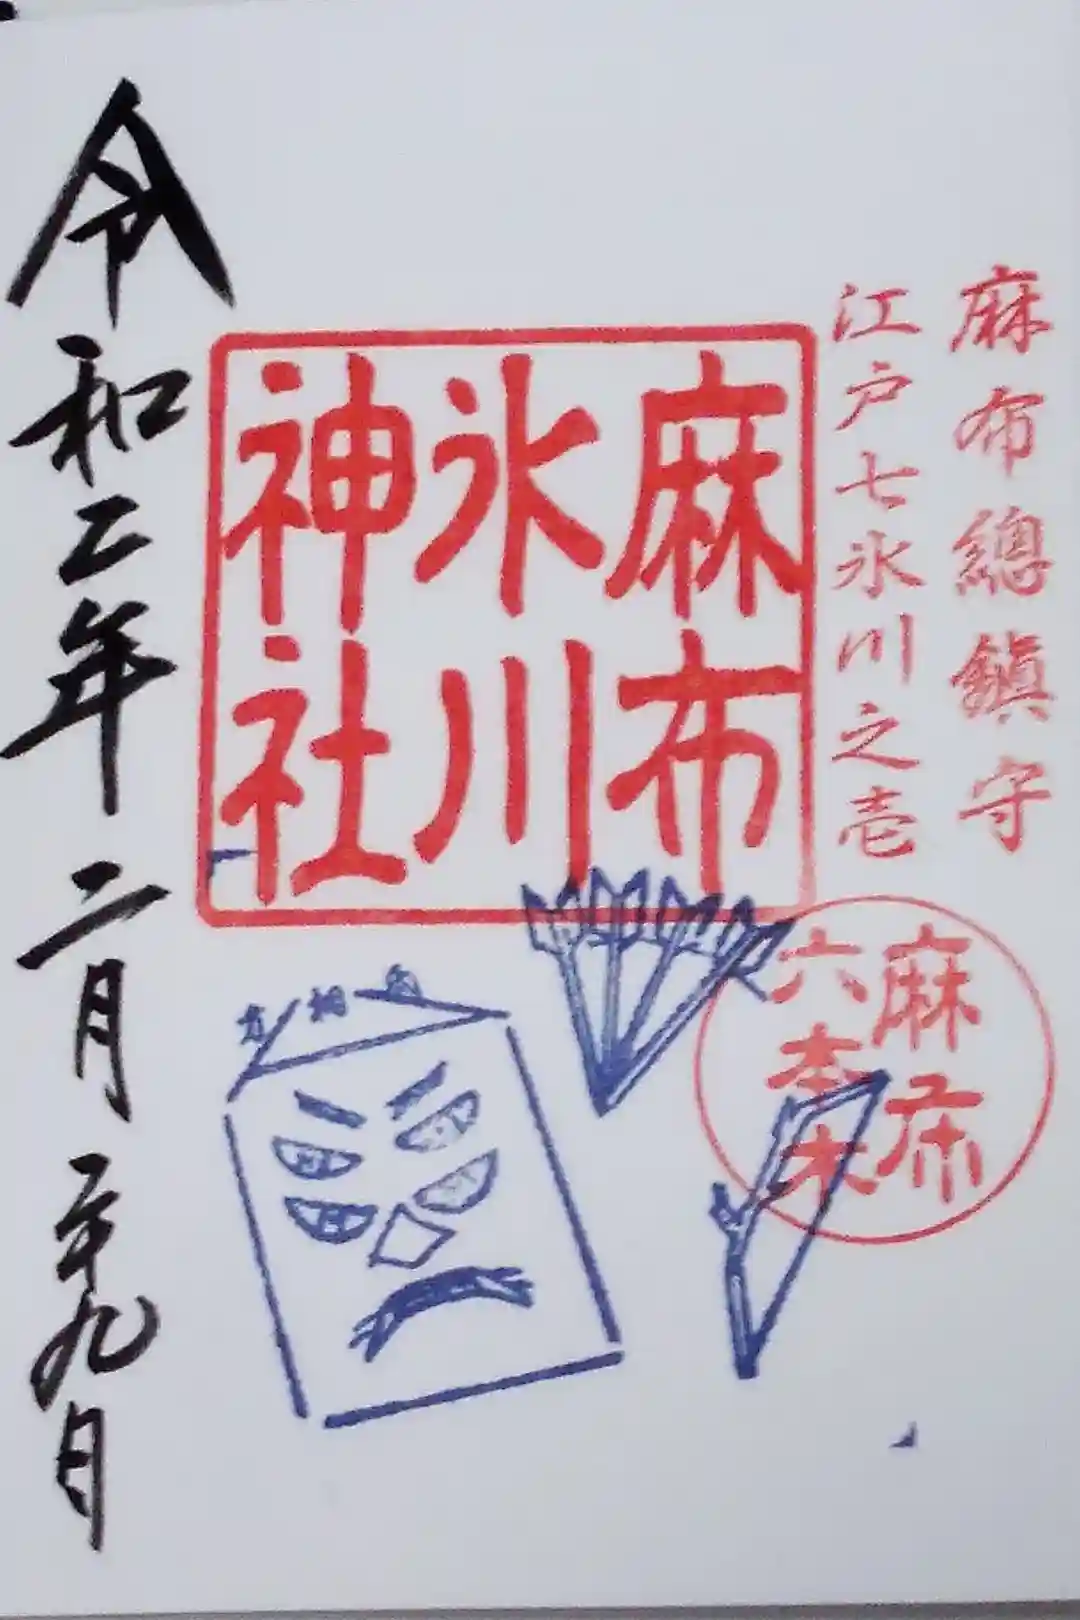 麻布總鎭守
江戸七氷川之壱
麻布
氷川
神社
麻布
六本木
方相氏
令和二年二月二十九日